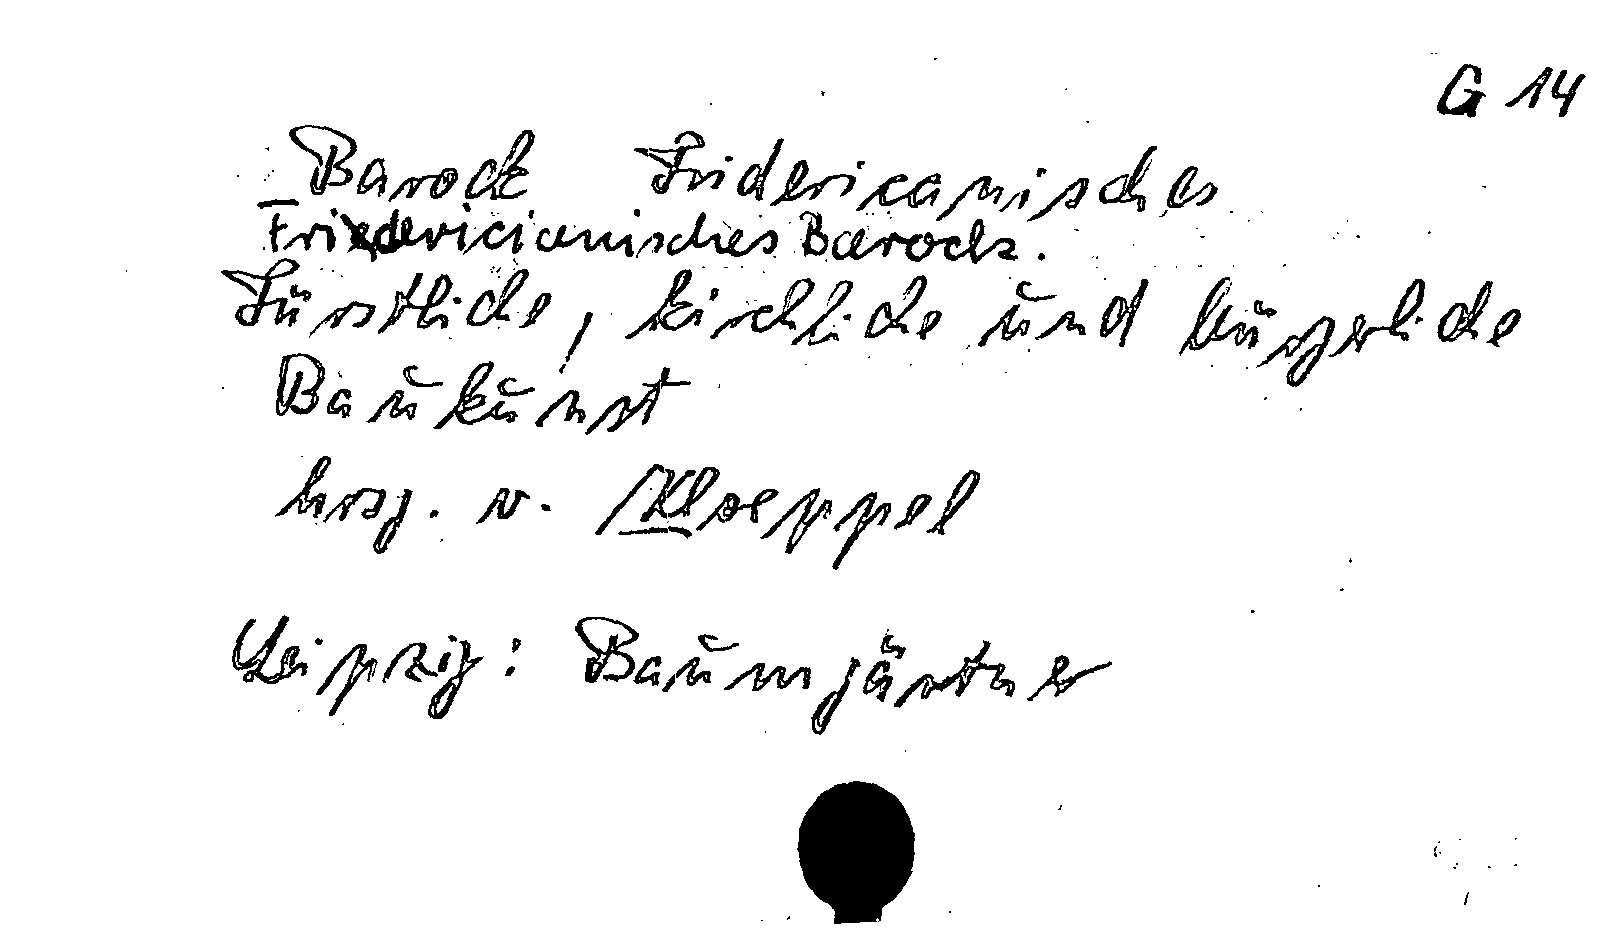 G 14
Barock Fridericanisches
Fridericianisches Barock.
Fürstliche, kirchliche und bürgerliche
Baukunst
hrsg. v. Kloeppel
Leipzig: Baumgärtner